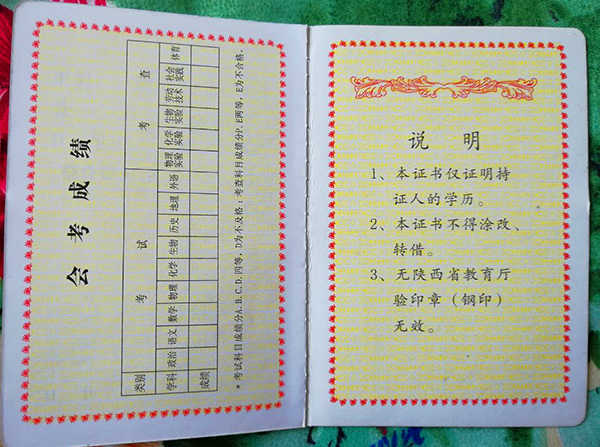 会考成绩
类别 考试 考查
学科 政治 语文 数学 物理 化学 生物 历史 地理 外语 物理实验 化学实验 生物实验 劳动技术 社会实践 体育
成绩
*考试科目成绩分A.B.C.D.四等,D为不及格;考查科目成绩分P、E两等,E为不合格。
说 明
1、本证书仅证明持
证人的学历。
2、本证书不得涂改、
转借。
3、无陕西省教育厅
验印章(钢印)
无效。